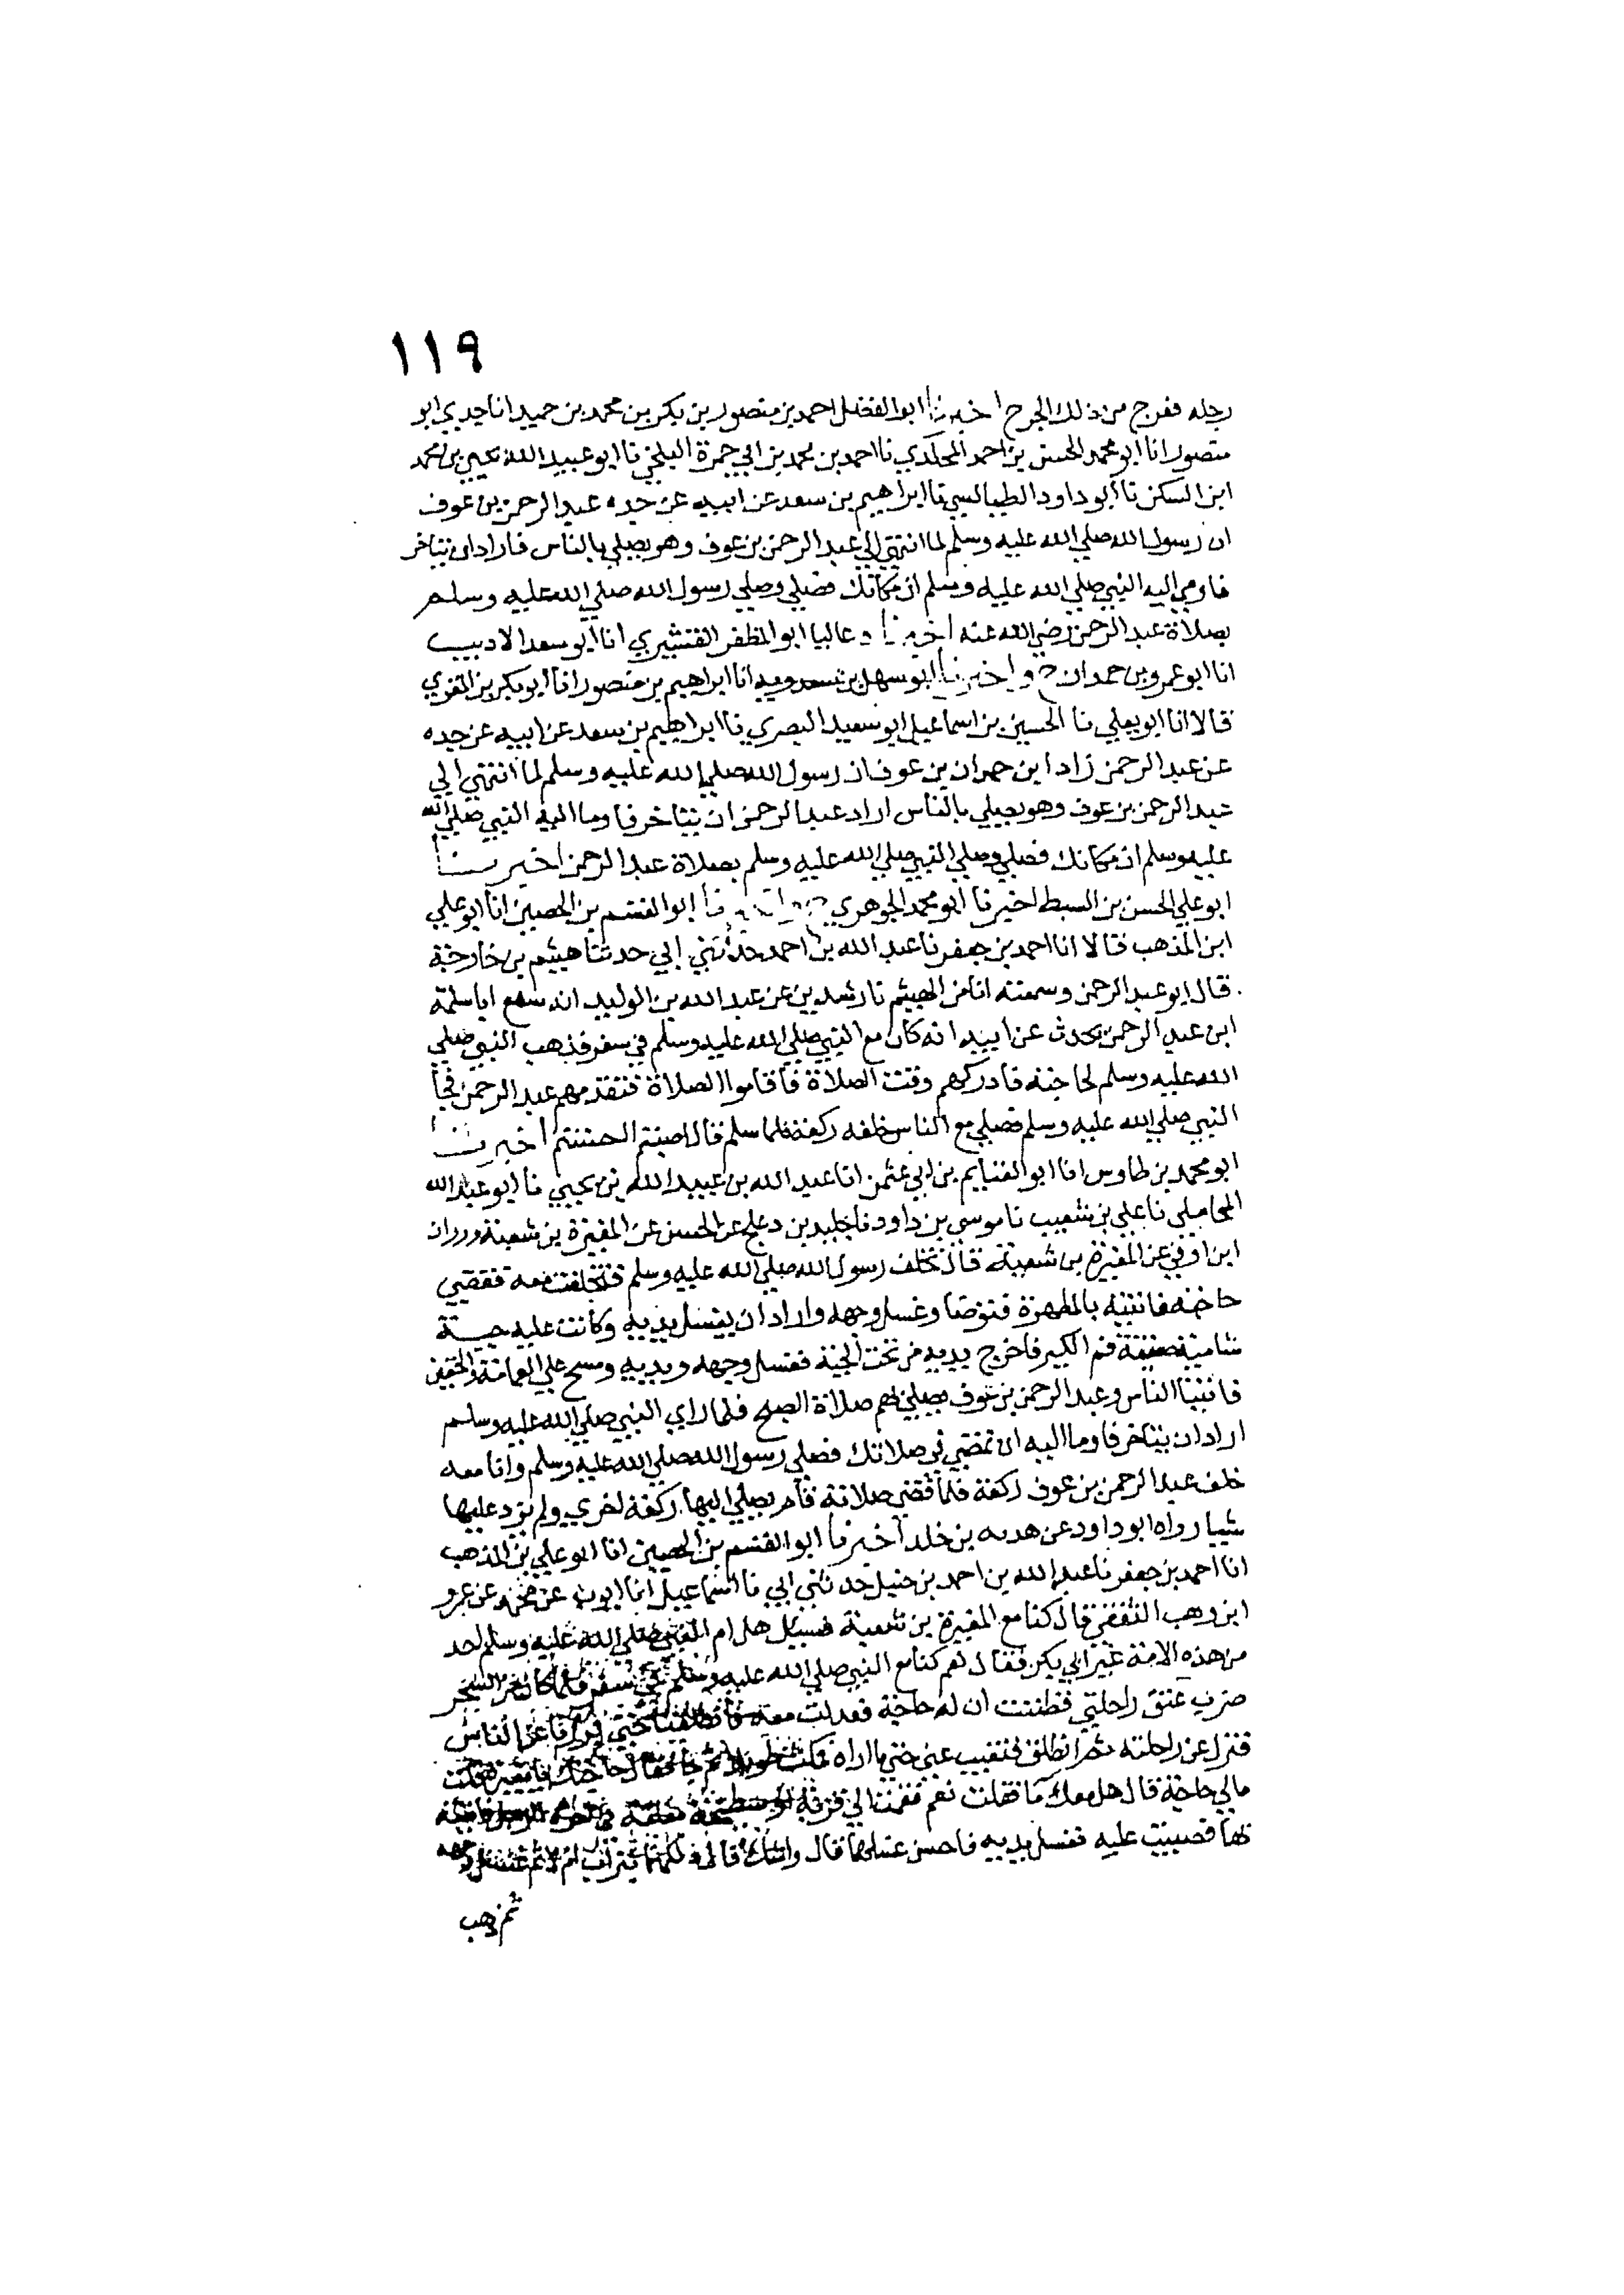 ١١٩
رجله ففرج من ذلك الجرح اخبرنا ابو الفضل احمد بن منصور بن بكر بن محمد بن حميد انا جدي ابو
منصور انا ابو محمد الحسن بن احمد المخلدي نا احمد بن محمد بن ابي حمزة البلخي نا ابو عبيد الله يحيي بن محمد
ابن السكن نا ابو داود الطيالسي نا ابراهيم بن سعد عن ابيه عن جده عبد الرحمن بن عوف
ان رسول الله صلي الله عليه وسلم لما انتهي الي عبد الرحمن بن عوف وهو يصلي بالناس فاراد ان يتاخر
فاومي اليه النبي صلي الله عليه وسلم ان مكانك فصلي وصلي رسول الله صلي الله عليه وسلم
بصلاة عبد الرحمن رضي الله عنه اخبرنا عاليا ابو المظفر القشيري انا ابو سعد الاديب
انا ابو عمرو بن حمدان ح واخبرنا ابو سهل بن سعدويه انا ابراهيم بن منصور انا ابو بكر بن المقري
قالا انا ابو يعلي نا الحسين بن اسماعيل ابو سعيد البصري نا ابراهيم بن سعد عن ابيه عن جده
عن عبد الرحمن زاد ابن حمدان بن عوف ان رسول الله صلي الله عليه وسلم لما انتهي الي
عبد الرحمن بن عوف وهو يصلي بالناس اراد عبد الرحمن ان يتاخر فاوما اليه النبي صلي الله
عليه وسلم ان مكانك فصلي وصلي النبي صلي الله عليه وسلم بصلاة عبد الرحمن اخبرنا
ابو علي الحسن بن السبط اخبرنا ابو محمد الجوهري ح واخبرنا ابو القسم بن الحصين انا ابو علي
ابن المذهب قالا انا احمد بن جعفر نا عبد الله بن احمد حدثني ابي حدثنا هيثم بن خارجة
قال ابو عبد الرحمن وسمعته انا من الهيثم نا رشدين عن عبد الله بن الوليد انه سمع ابا سلمة
ابن عبد الرحمن يحدث عن ابيه انه كان مع النبي صلي الله عليه وسلم في سفر فذهب النبي صلي
الله عليه وسلم لحاجته فادركهم وقت الصلاة فاقاموا الصلاة فتقدمهم عبد الرحمن فجا
النبي صلي الله عليه وسلم فصلي مع الناس خلفه ركعة فلما سلم قال اصبتم احسنتم اخبرنا
ابو محمد بن طاوس انا ابو الغنايم بن ابي عثمن انا عبد الله بن عبيد الله بن يحيي نا ابو عبد الله
المحاملي نا علي بن شعيب نا موسي بن داود نا خليد بن دعلج عن الحسن عن المغيرة بن شعبة وزرارة
ابن اوفي عن المغيرة بن شعبة قال تخلف رسول الله صلي الله عليه وسلم فتخلفت معه فقضي
حاجته فاتيته بالمطهرة فتوضا وغسل وجهه واراد ان يغسل يديه وكانت عليه جبة
شامية ضيقة فم الكمين فاخرج يديه من تحت الجبة فغسل وجهه ويديه ومسح علي العمامة والخفين
فاتينا الناس وعبد الرحمن بن عوف يصلي بهم صلاة الصبح فلما راي النبي صلي الله عليه وسلم
اراد ان يتاخر فاوما اليه ان تمضي في صلاتك فصلي رسول الله صلي الله عليه وسلم وانا معه
خلف عبد الرحمن بن عوف ركعة فلما قضي صلاته قام يصلي اليها ركعة اخري ولم يزد عليها
شيا رواه ابو داود عن هدبه بن خلد اخبرنا ابو القسم بن الحصين انا ابو علي بن المذهب
انا احمد بن جعفر نا عبد الله بن احمد بن حنبل حدثني ابي نا اسماعيل انا ايوب عن محمد عن عمرو
ابن وهب الثقفي قال كنا مع المغيرة بن شعبة فسيل هل ام النبي صلي الله عليه وسلم احد
من هذه الامة غير ابي بكر فقال نعم كنا مع النبي صلي الله عليه وسلم في سفر فلما كان السحر
ضرب عنق راحلتي فظننت ان له حاجة فعدلت معه فانطلقنا حتي برزنا عن الناس
فنزل عن راحلته ثم انطلق فتغيب عني حتي ما اراه فمكث طويلا ثم جا فقال حاجتك يا مغيرة قلت
مالي حاجة قال هل معك ما فقلت نعم فقمت الي قربة معلقة في اخرة الرحل فاتيته
بها فصببت عليه فغسل يديه فاحسن غسلها قال واشك قال دلكهما بتراب ام لا ثم غسل وجهه
ثم ذهب